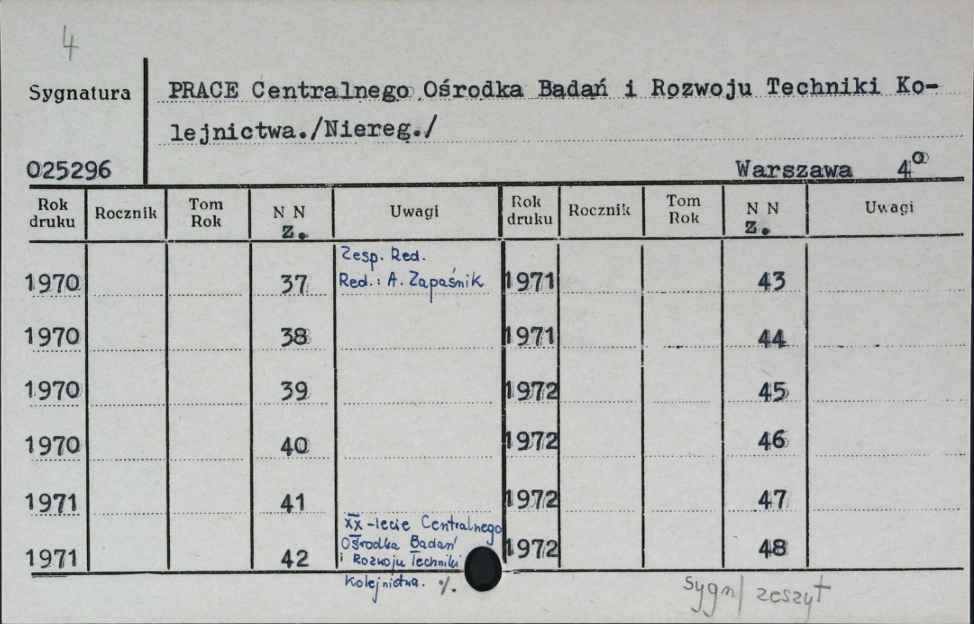 4
Sygnatura
PRACE Centralnego Ośrodka Badań i Rozwoju Techniki Ko-
lejnictwa./Niereg./
025296
Warszawa 4°
Rok druku Rocznik Tom Rok N N z. Uwagi Rok druku Rocznik Tom Rok N N z. Uwagi
Zesp. Red.
1970 37 Red.: A. Zapaśnik 1971 43
1970 38 1971 44
1970 39 1972 45
1970 40 1972 46
1971 41 1972 47
XX-lecie Centralnego
Ośrodka Badań
1971 42 i Rozwoju Techniki 1972 48
Kolejnictwa. %.
sygn/ zeszyt